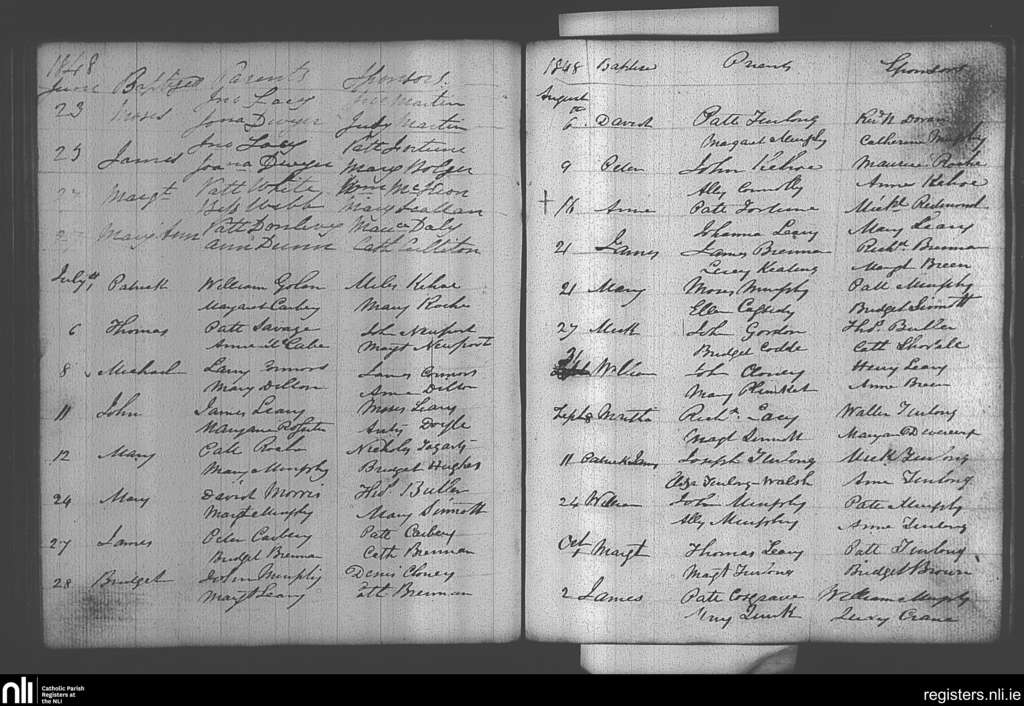 1848
June Baptized Parents Sponsors
23 Moses Jno Lacy Jno Martin
Jona Dwyer Judy Martin
23 James Jno Lacy Patt Fortune
Joana Dwyer Mary Bolger
Margt Patt White
Bess Webb Mary Scallan
Mary Ann Patt Donlevy Maue Daly
Ann Dunn Cath Culliton
July 1st Patrick William Golan Miles Kehoe
Margaret Carbery Mary Roche
6 Thomas Patt Savage John Neuport
Anne McCabe Margt Neuport
8 Michael Larry Connors James Connors
Mary Dillon Anne Dillon
11 John James Leary Moses Leary
Maryane Rossiter Anty Doyle
12 Mary Patt Roche Nichols Fogarty
Mary Murphy Bridget Hughes
24 Mary David Morris Thos Butler
Margt Murphy Mary Sinnott
27 James Peter Carbery Patt Carbery
Bridget Brennan Cath Brennan
28 Bridget John Murphy Denis Cloney
Margt Leary Cath Brennan
1848 Baptise Parents Sponsors
August
6th David Patt Furlong Revd N Doran
Margaret Murphy Catherine Murphy
9 Peter John Kehoe Maurice Roche
Ally Connolly Anne Kehoe
+ 16 Anne Patt Fortune Mickl Redmond
Johanna Leary Mary Leary
21 James James Brennan Richd Brennan
Lucey Keating Margt Breen
21 Mary Moses Murphy Patt Murphy
Ellen Cassidy Bridget Sinnott
27 Mick John Gordon Thos Butler
Bridget Codde Cath Shortale
31 William John Cloney Henry Leary
Mary Plunket Anne Breen
Sept 8 Martha Richd Lacy Walter Furlong
Margt Sinnott Maryan Devereux
11 Patrick James Joseph Furlong Mick Furlong
Eliza Furlong Walsh Anne Furlong
24 William John Murphy Patt Murphy
Ally Murphy Anne Furlong
Oct 1 Margt Thomas Leary Patt Furlong
Margt Furlong Bridget Brown
2 James Patt Cosgrave William Murphy
Mary Quirk Judy Crane
nli Catholic Parish
Registers at
the NLI
registers.nli.ie